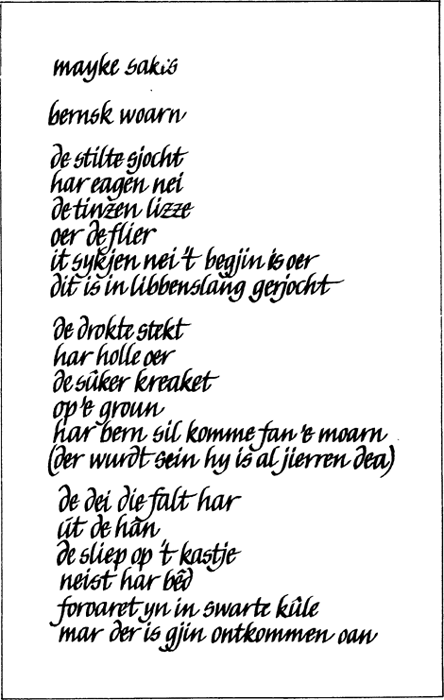 mayke sakis
bernsk woarn
de stilte sjocht
har eagen nei
de tinzen lizze
oer de flier
it sykjen nei 't begjin is oer
dit is in libbenslang gerjocht
de drokte stekt
har holle oer
de sûker kreaket
op 'e groun
har bern sil komme fan 'e moarn
(der wurdt sein hy is al jierren dea)
de dei die falt har
út de hân
de sliep op 't kastje
neist har bêd
foroaret yn in swarte kûle
mar der is gjin ontkommen oan